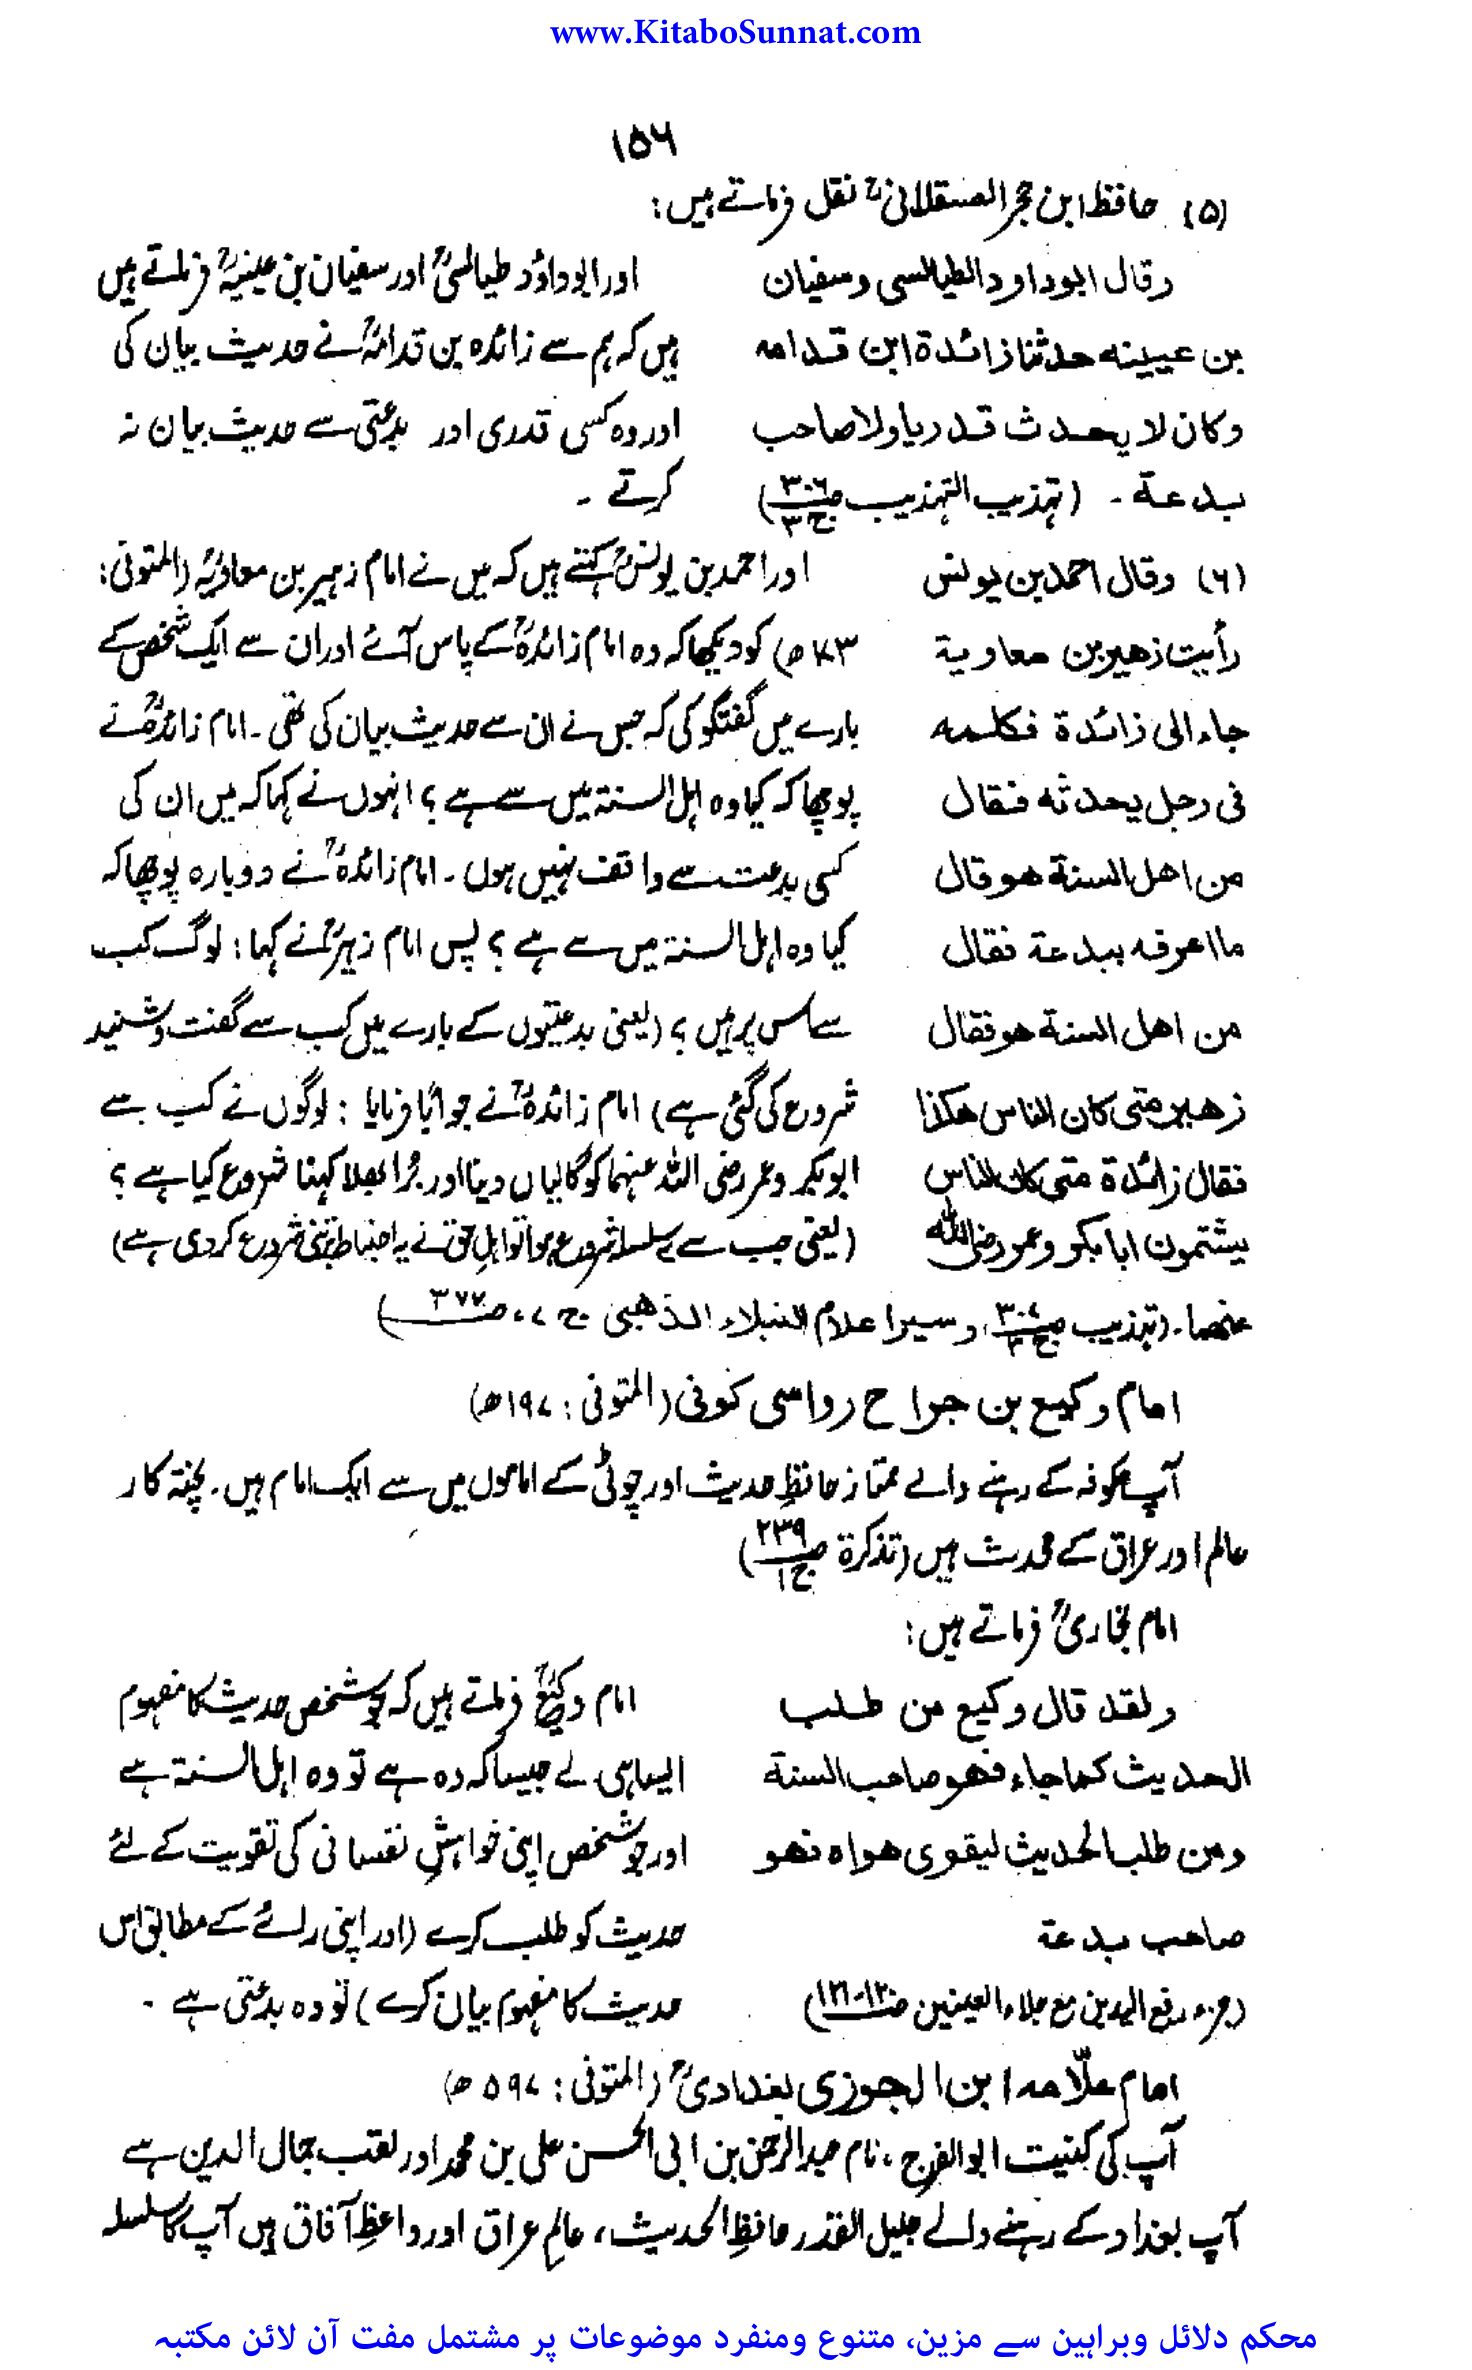 www.KitaboSunnat.com
۱۵۶
(۵) حافظ ابن حجر العسقلانیؒ نقل فرماتے ہیں:
وقال ابوداود الطیالسی وسفیان
بن عیینه حدثنا زائدة ابن قدامه
وکان لا یحدث قدریا ولا صاحب
بدعة - (تہذیب التہذیب ص۳۰۶ ج۳)
اور ابوداؤد طیالسیؒ اور سفیان بن عیینہؒ فرماتے ہیں
ہیں کہ ہم سے زائدہ بن قدامہؒ نے حدیث بیان کی
اور وہ کسی قدری اور بدعتی سے حدیث بیان نہ
کرتے ۔
(۶) وقال احمد بن یونس
رأیت زهیر بن معاویة
جاء الی زائدة فکلمه
فی رجل یحدثه فقال
من اهل السنة هو قال
ما اعرفه ببدعة فقال
من اهل السنة هو فقال
زهیر متی کان الناس هکذا
فقال زائدة متی کان الناس
یشتمون ابا بکر وعمر رضی الله
عنهما۔ (تہذیب ص۳۰۷ ج۳، وسیر اعلام النبلاء الذهبی ج ۷، ص۳۷۷)
اور احمد بن یونسؒ کہتے ہیں کہ میں نے امام زہیر بن معاویہؒ (المتوفی:
۱۷۳ھ) کو دیکھا کہ وہ امام زائدہؒ کے پاس آئے اور ان سے ایک شخص کے
بارے میں گفتگو کی کہ جس نے ان سے حدیث بیان کی تھی ۔ امام زائدہؒ نے
پوچھا کہ کیا وہ اہل السنۃ میں سے ہے ؟ انہوں نے کہا کہ میں ان کی
کسی بدعت سے واقف نہیں ہوں ۔ امام زائدہؒ نے دوبارہ پوچھا کہ
کیا وہ اہل السنۃ میں سے ہے ؟ پس امام زہیرؒ نے کہا : لوگ کب
سے اس پر ہیں ؟ (یعنی بدعتیوں کے بارے میں کب سے گفت وشنید
شروع کی گئی ہے) امام زائدہؒ نے جواباً فرمایا : لوگوں نے کب سے
ابوبکر وعمر رضی اللہ عنہما کو گالیاں دینا اور بُرا بھلا کہنا شروع کیا ہے ؟
(یعنی جب سے یہ سلسلہ شروع ہوا تو اہلِ حق نے یہ احتیاط برتنی شروع کردی ہے)
امام وکیع بن جراح رواسی کوفی (المتوفی : ۱۹۷ھ)
آپ کوفہ کے رہنے والے ممتاز حافظِ حدیث اور چوٹی کے اماموں میں سے ایک امام ہیں۔ پختہ کار
عالم اور عراق کے محدث ہیں (تذکرة ص۲۳۹ ج۱)
امام بخاریؒ فرماتے ہیں:
ولقد قال وکیع من طلب
الحدیث کما جاء فهو صاحب السنة
ومن طلب الحدیث لیقوی هواه فهو
صاحب بدعة
(جزء رفع الیدین مع جلاء العینین ص۱۲۰-۱۲۱)
امام وکیعؒ فرماتے ہیں کہ جو شخص حدیث کا مفہوم
ایسا ہی لے جیسا کہ وہ ہے تو وہ اہل السنۃ ہے
اور جو شخص اپنی خواہشِ نفسانی کی تقویت کے لئے
حدیث کو طلب کرے (اور اپنی رائے کے مطابق اس
حدیث کا مفہوم بیان کرے) تو وہ بدعتی ہے ۔
امام علّامہ ابن الجوزی بغدادیؒ (المتوفی : ۵۹۷ھ)
آپ کی کنیت ابوالفرج ، نام عبدالرحمٰن بن ابی الحسن علی بن محمد اور لقب جمال الدین ہے
آپ بغداد کے رہنے والے جلیل القدر حافظِ الحدیث، عالمِ عراق اور واعظِ آفاق ہیں آپ کا سلسلہ
محکم دلائل وبراہین سے مزین، متنوع ومنفرد موضوعات پر مشتمل مفت آن لائن مکتبہ